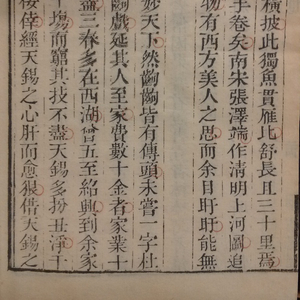 橫披此獨魚貫雁比舒長且三十里焉
手卷矣南宋張澤端作清明上河圖追
物有西方美人之思而余目盱盱能無
妙天下然齣齣皆有傳頭未嘗一字杜
齣戲延其人至家費數十金者家業十
盡三春多在西湖曾五至紹興到余家
塲而竊其技不盡天錫多扮丑淨千
佞倖經天錫之心肝而愈狠借天錫之